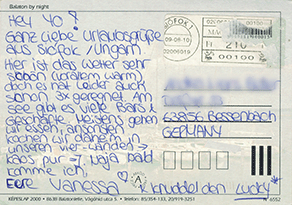 Balaton by night
Hey Yo!
Ganz liebe Urlaubsgrüße
aus Siófok / Ungarn
Hier ist das Wetter sehr
schön (vorallem warm)
doch es hat leider auch
schon 3x geregnet. Am
See gibt es viele Bars &
Geschäfte. Meistens gehen
wir essen, ansonsten
kochen wir daheim in
unseren vier-wänden →
Haus pur :-) Naja bald
komme ich,
Eure Vanessa
& knuddel den Lucky
SIÓFOK
09-08-10
02006019
210
00100
63856 Bessenbach
GERMANY
A
RÉPESLAP 2000 • 8638 Balatonlelle, Vágóhíd utca 5 • Telefon: 85/354-133, 20/919-3251
N 6552